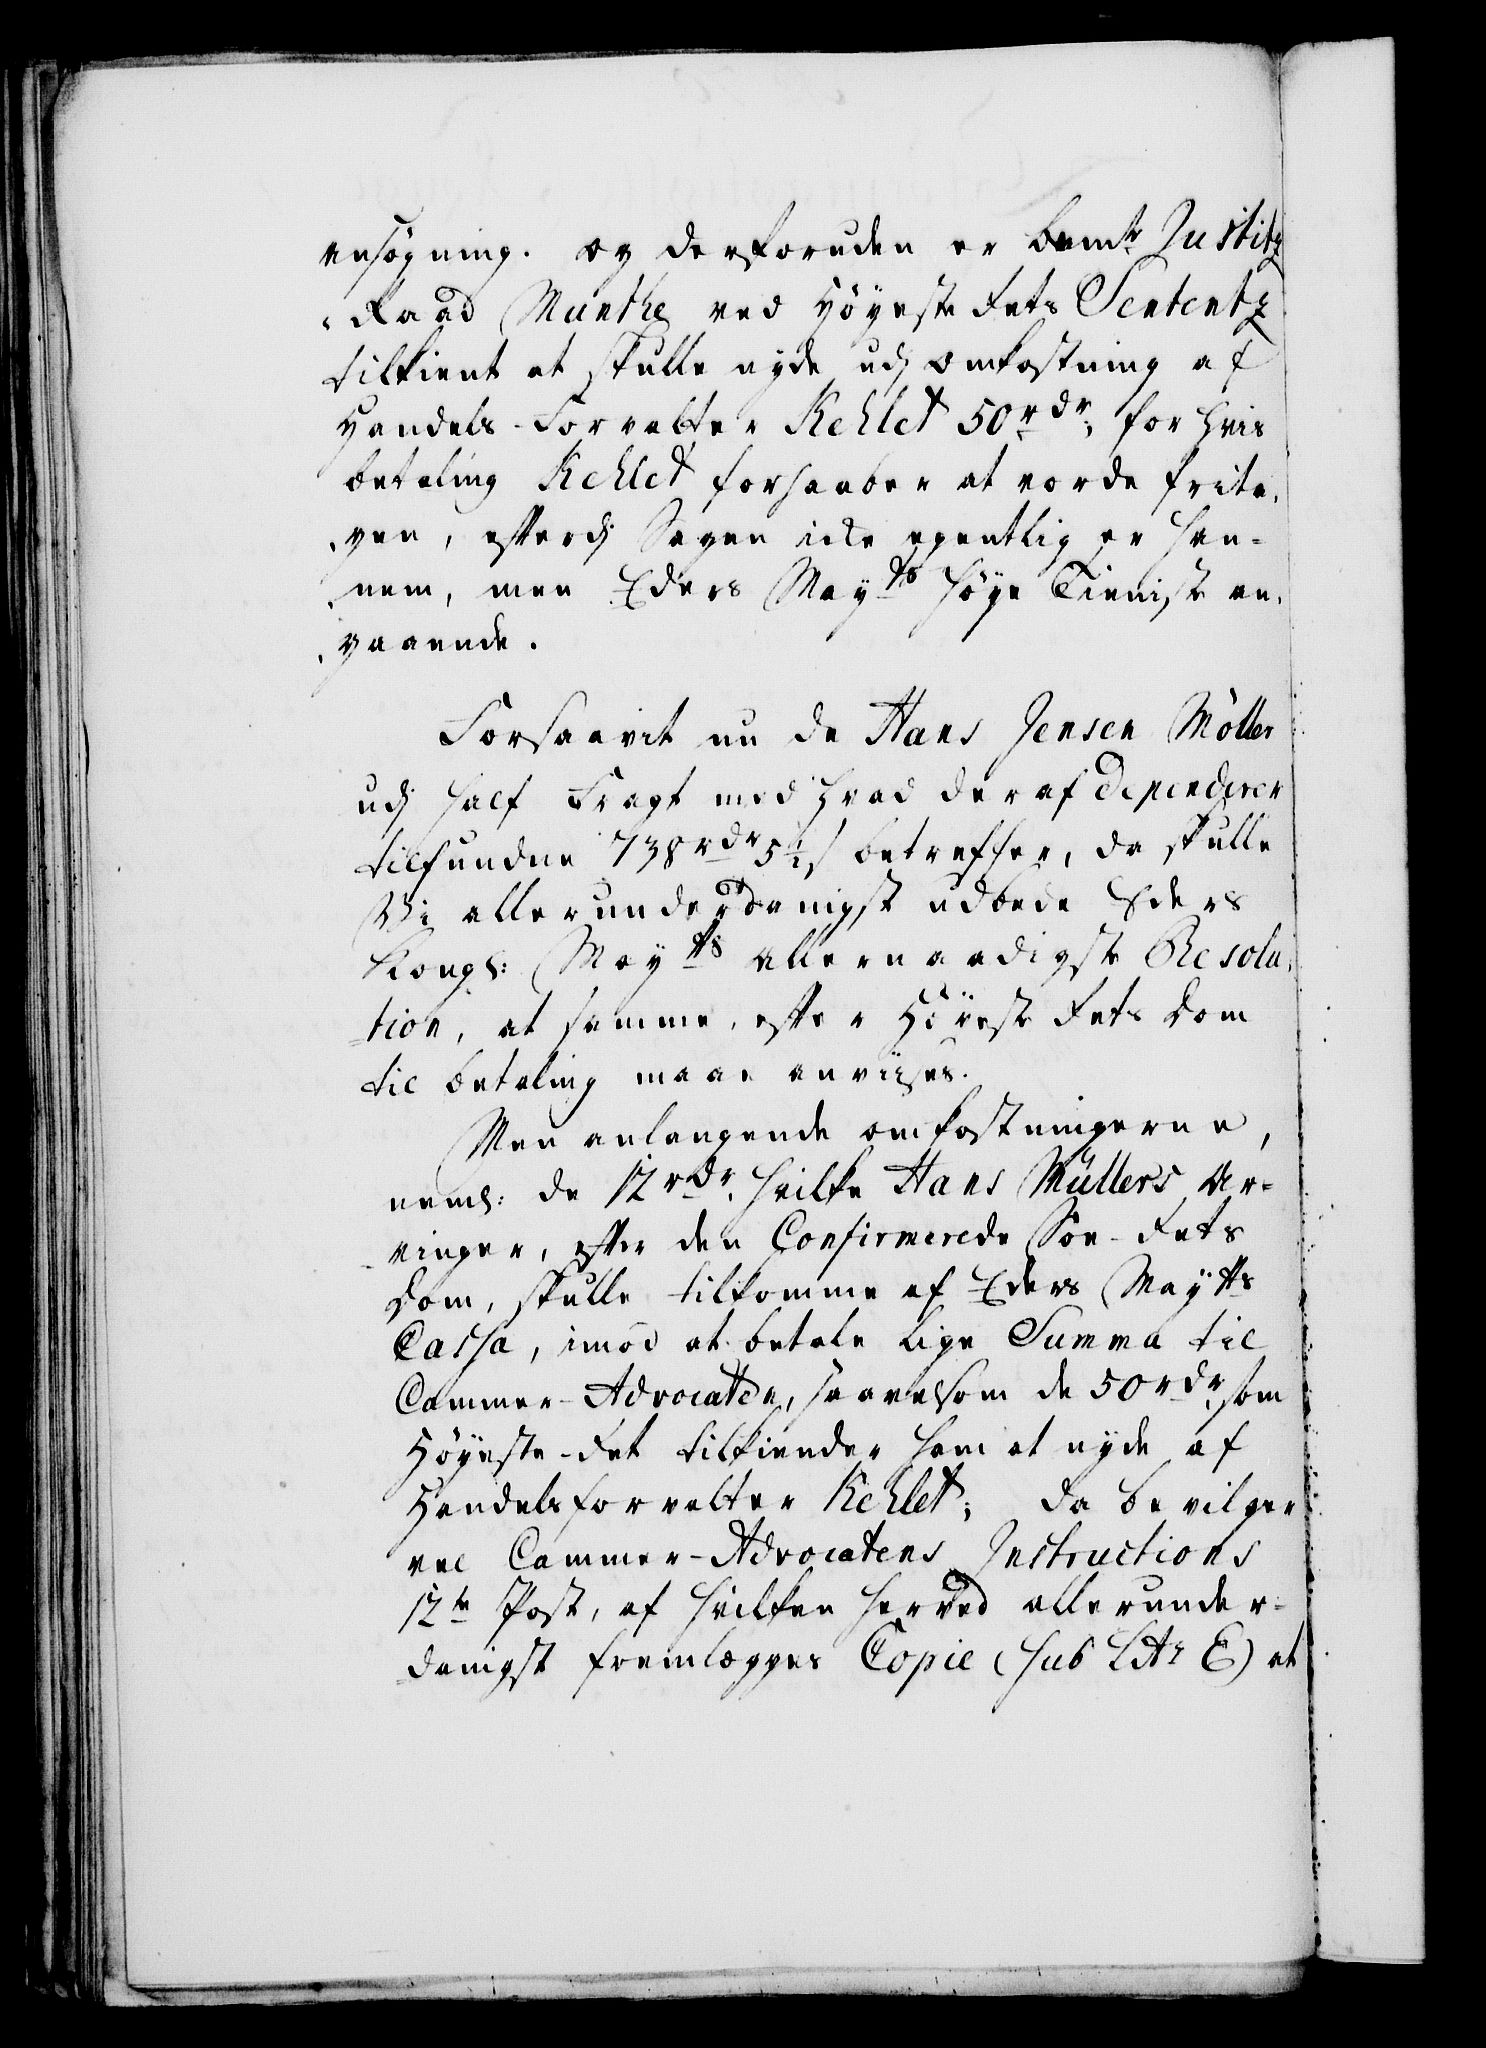 ansøgning. og desforuden er bemte Justitz
Raad Munthe ved Høyeste Rets Sententz
tilkient at skulle nyde udj omkostning af
Handels-Forvalter Kehlet 50 rdr; for hvis
betaling Kehlet forhaaber at vorde frita-
gen, efterdj Sagen icke egentlig er han-
nem, men Eders Mayts høye Tieniste an-
gaaende.
Forsaavit nu de Hans Jensen Møller
udj half Fragt med hvad deraf dependerer
tilfundne 738 rdr 5½ s betreffer, da skulle
Vi allerunderdanigst udbede Eders
Kongl: Mayts allernaadigste Resolu-
tion, at samme, efter Høyeste Rets Dom
til betaling maae anviises.
Men anlangende omkostningerne,
neml: de 12 rdr. hvilke Hans Müllers Ar-
vinger, efter den Confirmerede Søe-Rets
Dom, skulle tilkomme af Eders Mayts
Cassa, imod at betale lige Summa til
Cammer-Advocaten, saavelsom de 50 rdr, som
Høyeste-Ret tilkiender ham at nyde af
Handelsforvalter Kehlet; da bevilger
vel Cammer-Advocatens Instructions
12te Post, af hvilken herved allerunder-
danigst fremlægges Copie (sub Litr E) at